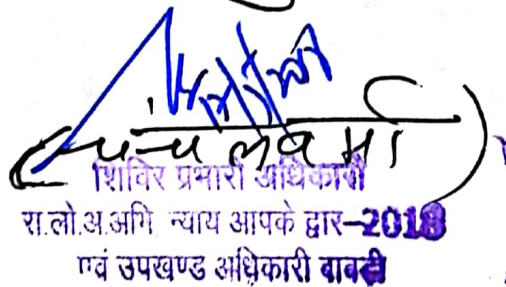 (चंचल वर्मा)
शिविर प्रभारी अधिकारी
रा.लो.अ.अभि न्याय आपके द्वार-2018
एवं उपखण्ड अधिकारी बावड़ी